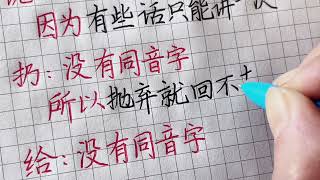 因为有些话只能讲一次
扔：没有同音字
所以抛弃就回不
给：没有同音字